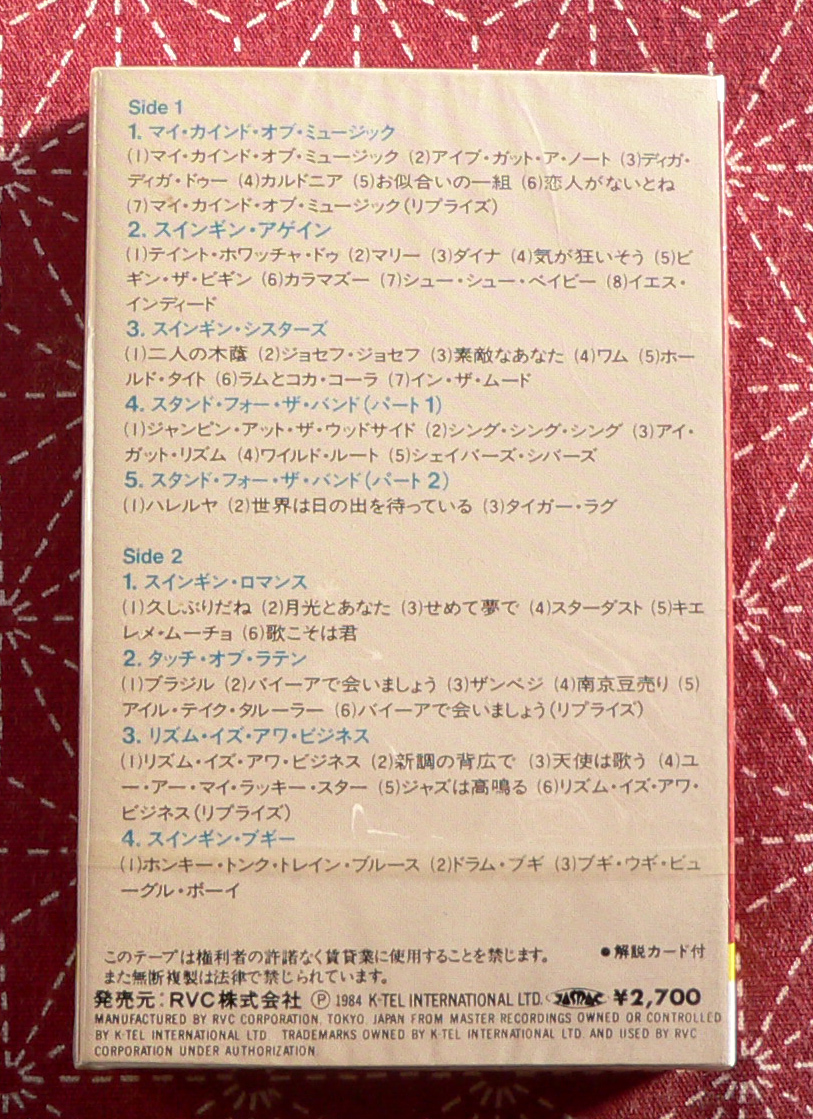 Side 1
1. マイ・カインド・オブ・ミュージック
(1)マイ・カインド・オブ・ミュージック (2)アイブ・ガット・ア・ノート (3)ディガ・
ディガ・ドゥー (4)カルドニア (5)お似合いの一組 (6)恋人がないとね
(7)マイ・カインド・オブ・ミュージック(リプライズ)
2. スインギン・アゲイン
(1)テイント・ホワッチャ・ドゥ (2)マリー (3)ダイナ (4)気が狂いそう (5)ビ
ギン・ザ・ビギン (6)カラマズー (7)シュー・シュー・ベイビー (8)イエス・
インディード
3. スインギン・シスターズ
(1)二人の木蔭 (2)ジョセフ・ジョセフ (3)素敵なあなた (4)ワム (5)ホー
ルド・タイト (6)ラムとコカ・コーラ (7)イン・ザ・ムード
4. スタンド・フォー・ザ・バンド(パート1)
(1)ジャンピン・アット・ザ・ウッドサイド (2)シング・シング・シング (3)アイ・
ガット・リズム (4)ワイルド・ルート (5)シェイバーズ・シバーズ
5. スタンド・フォー・ザ・バンド(パート2)
(1)ハレルヤ (2)世界は日の出を待っている (3)タイガー・ラグ
Side 2
1. スインギン・ロマンス
(1)久しぶりだね (2)月光とあなた (3)せめて夢で (4)スターダスト (5)キエ
レメ・ムーチョ (6)歌こそは君
2. タッチ・オブ・ラテン
(1)ブラジル (2)バイーアで会いましょう (3)ザンベジ (4)南京豆売り (5)
アイル・テイク・タルーラー (6)バイーアで会いましょう(リプライズ)
3. リズム・イズ・アワ・ビジネス
(1)リズム・イズ・アワ・ビジネス (2)新調の背広で (3)天使は歌う (4)ユ
ー・アー・マイ・ラッキー・スター (5)ジャズは高鳴る (6)リズム・イズ・アワ・
ビジネス(リプライズ)
4. スインギン・ブギー
(1)ホンキー・トンク・トレイン・ブルース (2)ドラム・ブギ (3)ブギ・ウギ・ビュ
ーグル・ボーイ
このテープは権利者の許諾なく賃貸業に使用することを禁じます。 ●解説カード付
また無断複製は法律で禁じられています。
発売元:RVC株式会社 Ⓟ 1984 K-TEL INTERNATIONAL LTD. JASRAC ¥2,700
MANUFACTURED BY RVC CORPORATION, TOKYO, JAPAN FROM MASTER RECORDINGS OWNED OR CONTROLLED
BY K-TEL INTERNATIONAL LTD. TRADEMARKS OWNED BY K-TEL INTERNATIONAL LTD. AND USED BY RVC
CORPORATION UNDER AUTHORIZATION.